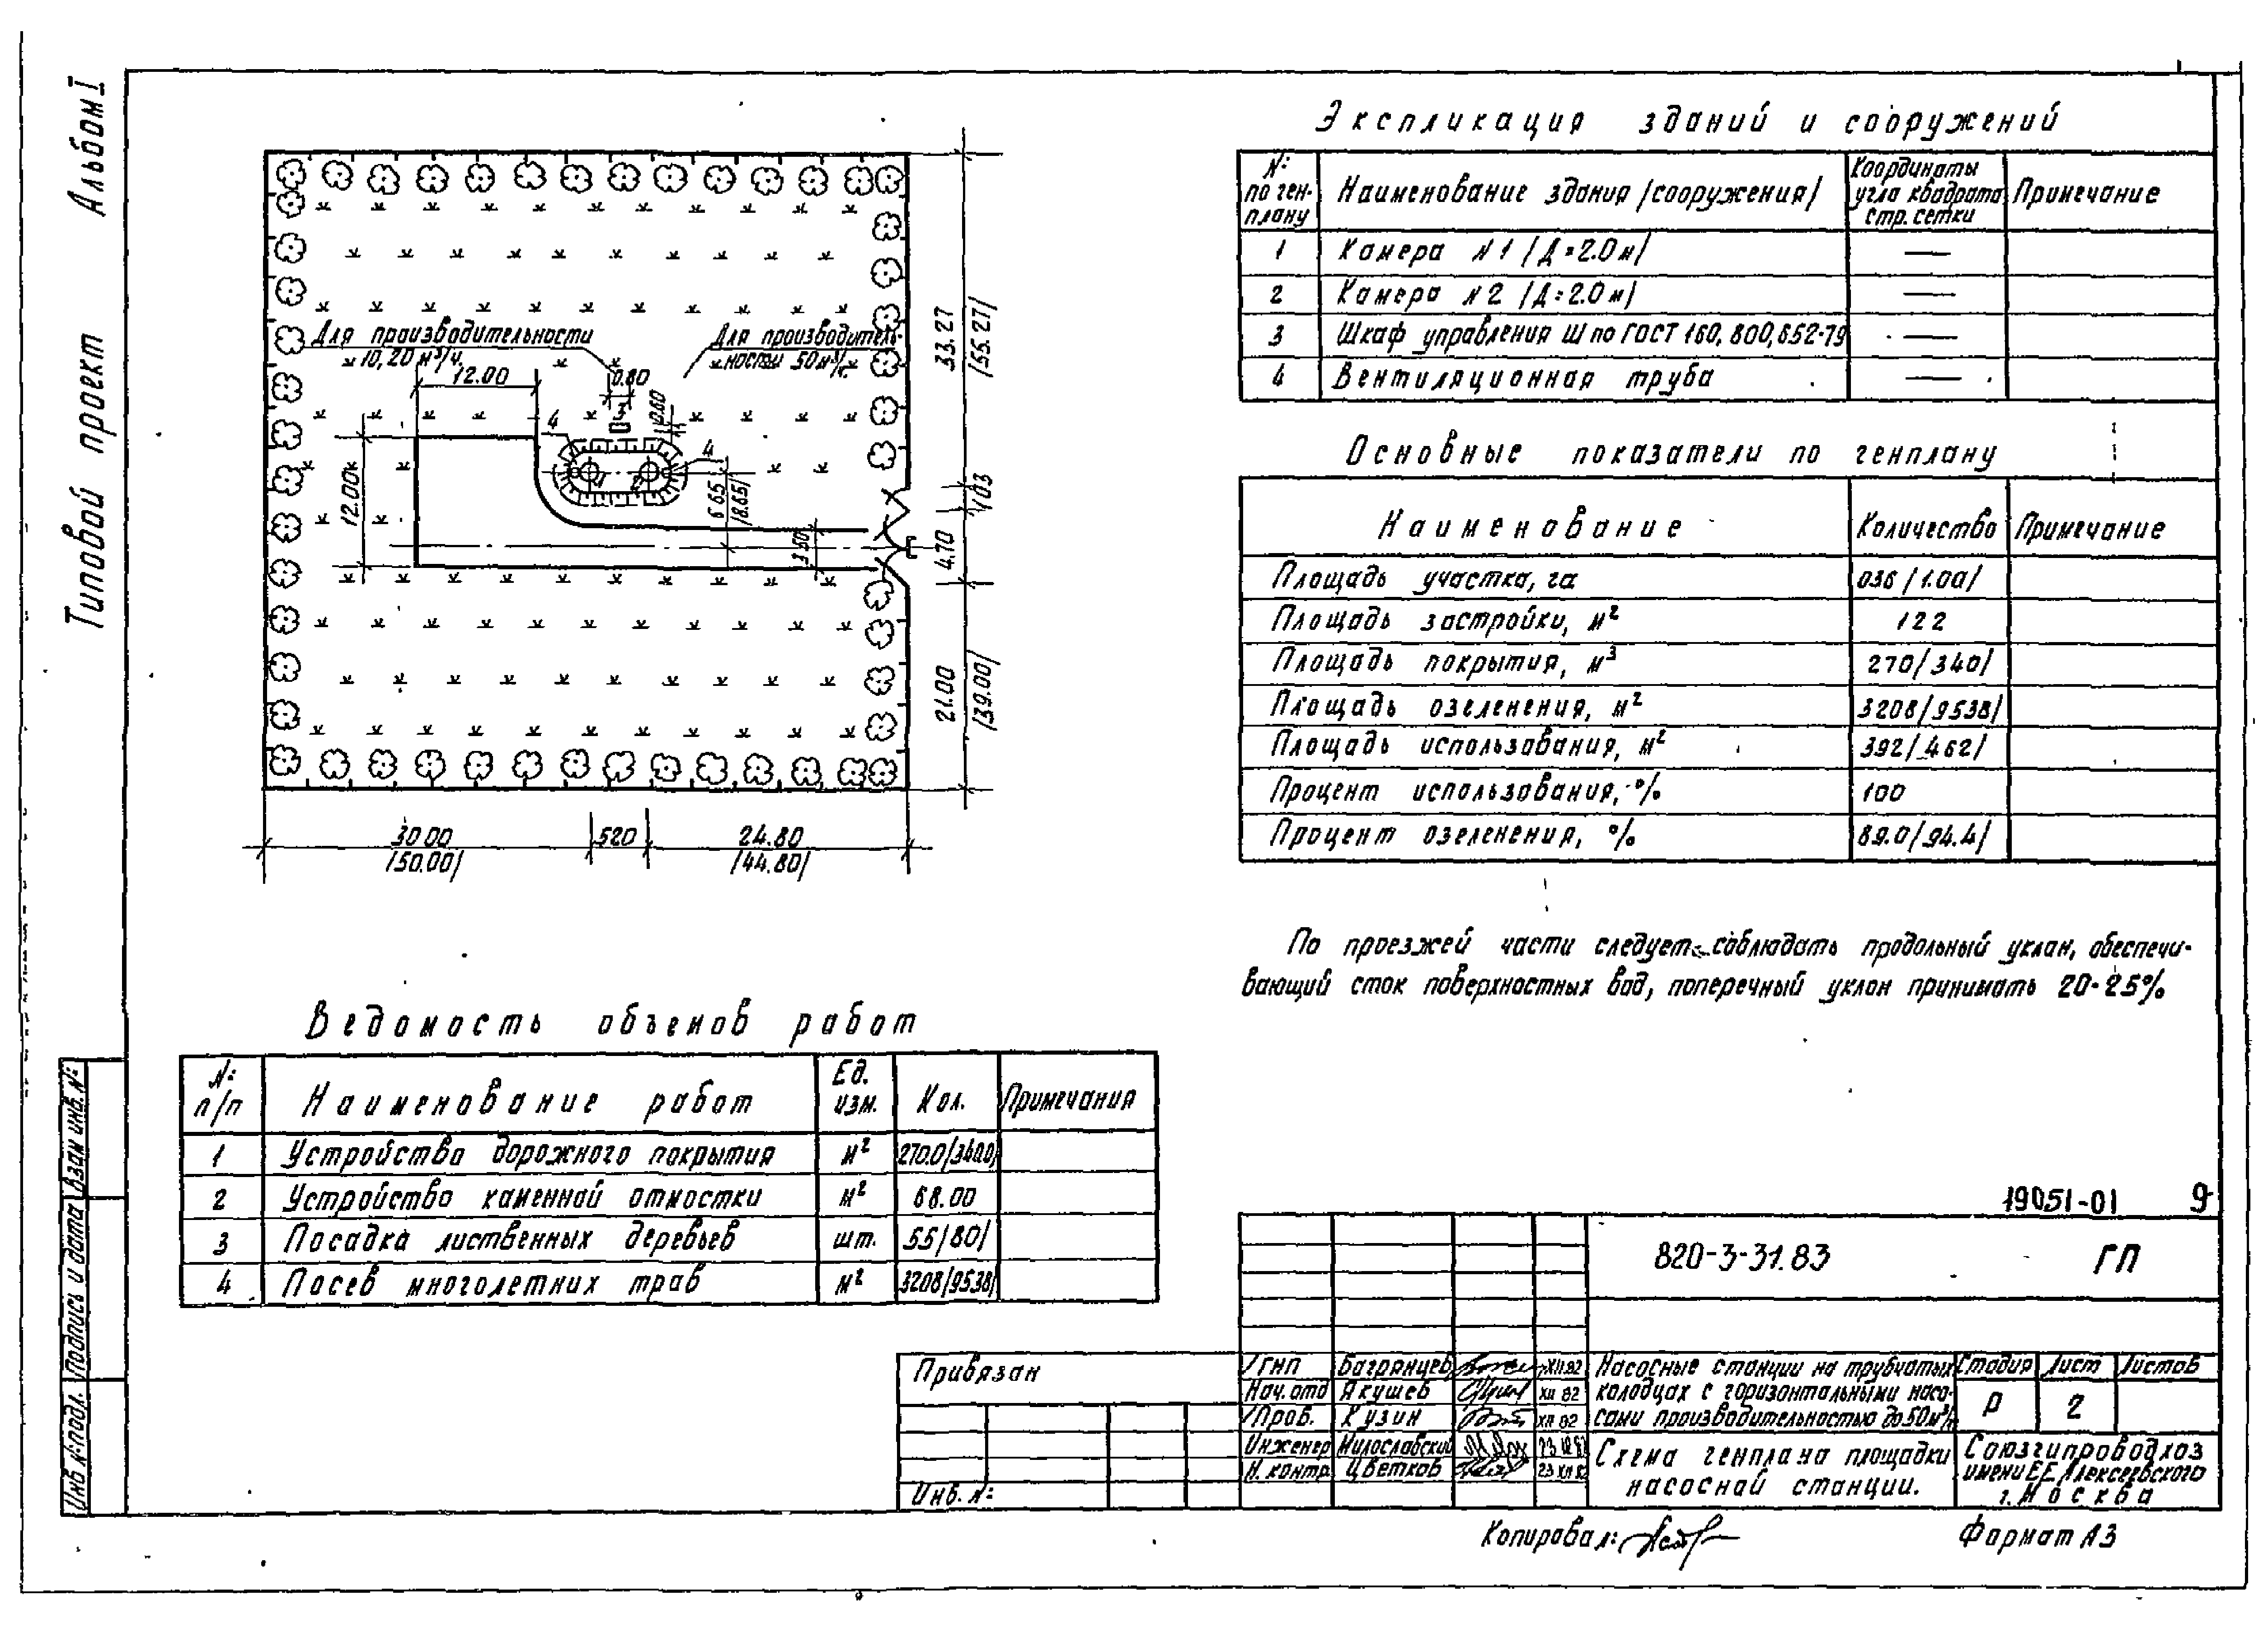 Типовой проект Альбом I
Для производительности
10,20 м³/ч.
Для производитель-
ности 50 м³/ч.
12.00
0.80
3
0.60
4
4
12.00
1
2
6.65
/8.65/
3.50
33.27
/55.27/
1.03
4.70
21.00
/39.00/
30.00
/50.00/
520
24.80
/44.80/
Экспликация зданий и сооружений
№ по ген-плану Наименование здания /сооружения/ Координаты угла квадрата стр. сетки Примечание
1 Камера №1 /Д=2.0м/ —
2 Камера №2 /Д=2.0м/ —
3 Шкаф управления Ш по ГОСТ 160,800,652-79 —
4 Вентиляционная труба —
Основные показатели по генплану
Наименование Количество Примечание
Площадь участка, га 036/1.00/
Площадь застройки, м² 122
Площадь покрытия, м³ 270/340/
Площадь озеленения, м² 3208/9538/
Площадь использования, м² 392/462/
Процент использования, % 100
Процент озеленения, % 89.0/94.4/
По проезжей части следует соблюдать продольный уклон, обеспечи-
вающий сток поверхностных вод, поперечный уклон принимать 20-25%
Ведомость объемов работ
№ п/п Наименование работ Ед. изм. Кол. Примечания
1 Устройство дорожного покрытия м² 270.0/340.0/
2 Устройство каменной отмостки м² 68.00
3 Посадка лиственных деревьев шт. 55/80/
4 Посев многолетних трав м² 3208/9538/
19051-01 9
820-3-31.83 ГП
Привязан
Инв. №:
ГИП Багрянцев XII 82
Нач. отд Якушев XII 82
Пров. Кузин XII 82
Инженер Милославский
Н. контр. Цветков
Насосные станции на трубчатых
колодцах с горизонтальными насо-
сами производительностью до 50 м³/ч
Стадия Лист Листов
Р 2
Схема генплана площадки
насосной станции.
Союзгипроводхоз
имени Е.Е. Алексеевского
г. Москва
Копировал:
Формат А3
Инв № подл. Подпись и дата Взам инв. №: